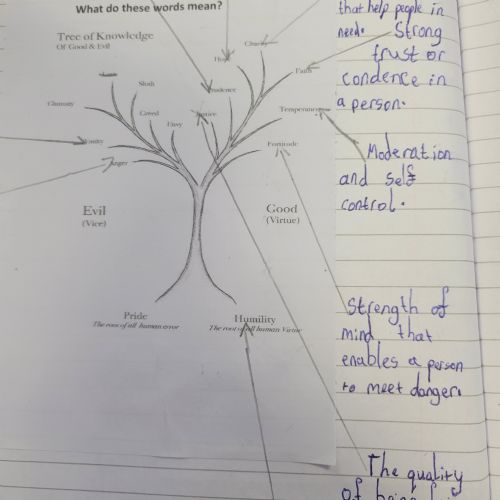 What do these words mean?
Tree of Knowledge
Of Good & Evil
Hope
Charity
Faith
Sloth
Prudence
Gluttony
Greed
Envy
Justice
Temperance
Vanity
Fortitude
Anger
Evil
(Vice)
Good
(Virtue)
Pride
The root of all human error
Humility
The root of all human Virtue
that help people in
need.
Strong
trust or
condence in
a person.
Moderation
and self
control.
Strength of
mind that
enables a person
to meet danger.
The quality
of being